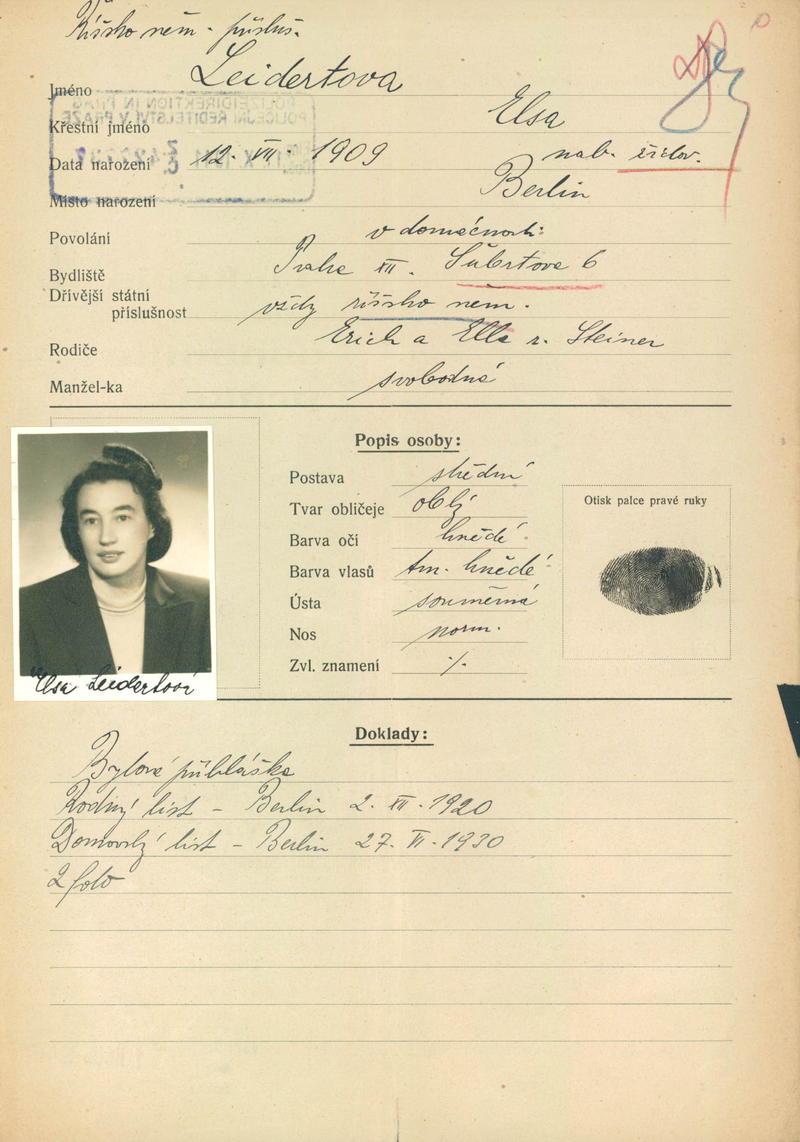 Říšsko něm. přísluš.
Jméno Leidertova
Křestní jméno Elsa
Data narození 12. VII. 1909 nab. židov.
Místo narození Berlin
Povolání v domácnosti
Bydliště Praha XII. Šubrtova 6
Dřívější státní
příslušnost vždy říšsko něm.
Rodiče Erich a Ella r. Steiner
Manžel-ka svobodná
POLIZEIDIREKTION IN PRAG
POLICEJNÍ ŘEDITELSTVÍ V PRAZE
Popis osoby:
Postava střední
Tvar obličeje oblý
Barva očí hnědé
Barva vlasů tm. hnědé
Ústa souměrná
Nos norm.
Zvl. znamení ·/.
Otisk palce pravé ruky
Elsa Leidertová
Doklady:
Bytová přihláška
Rodný list – Berlin 2. XII. 1920
Domovský list – Berlin 27. VI. 1930
2 foto